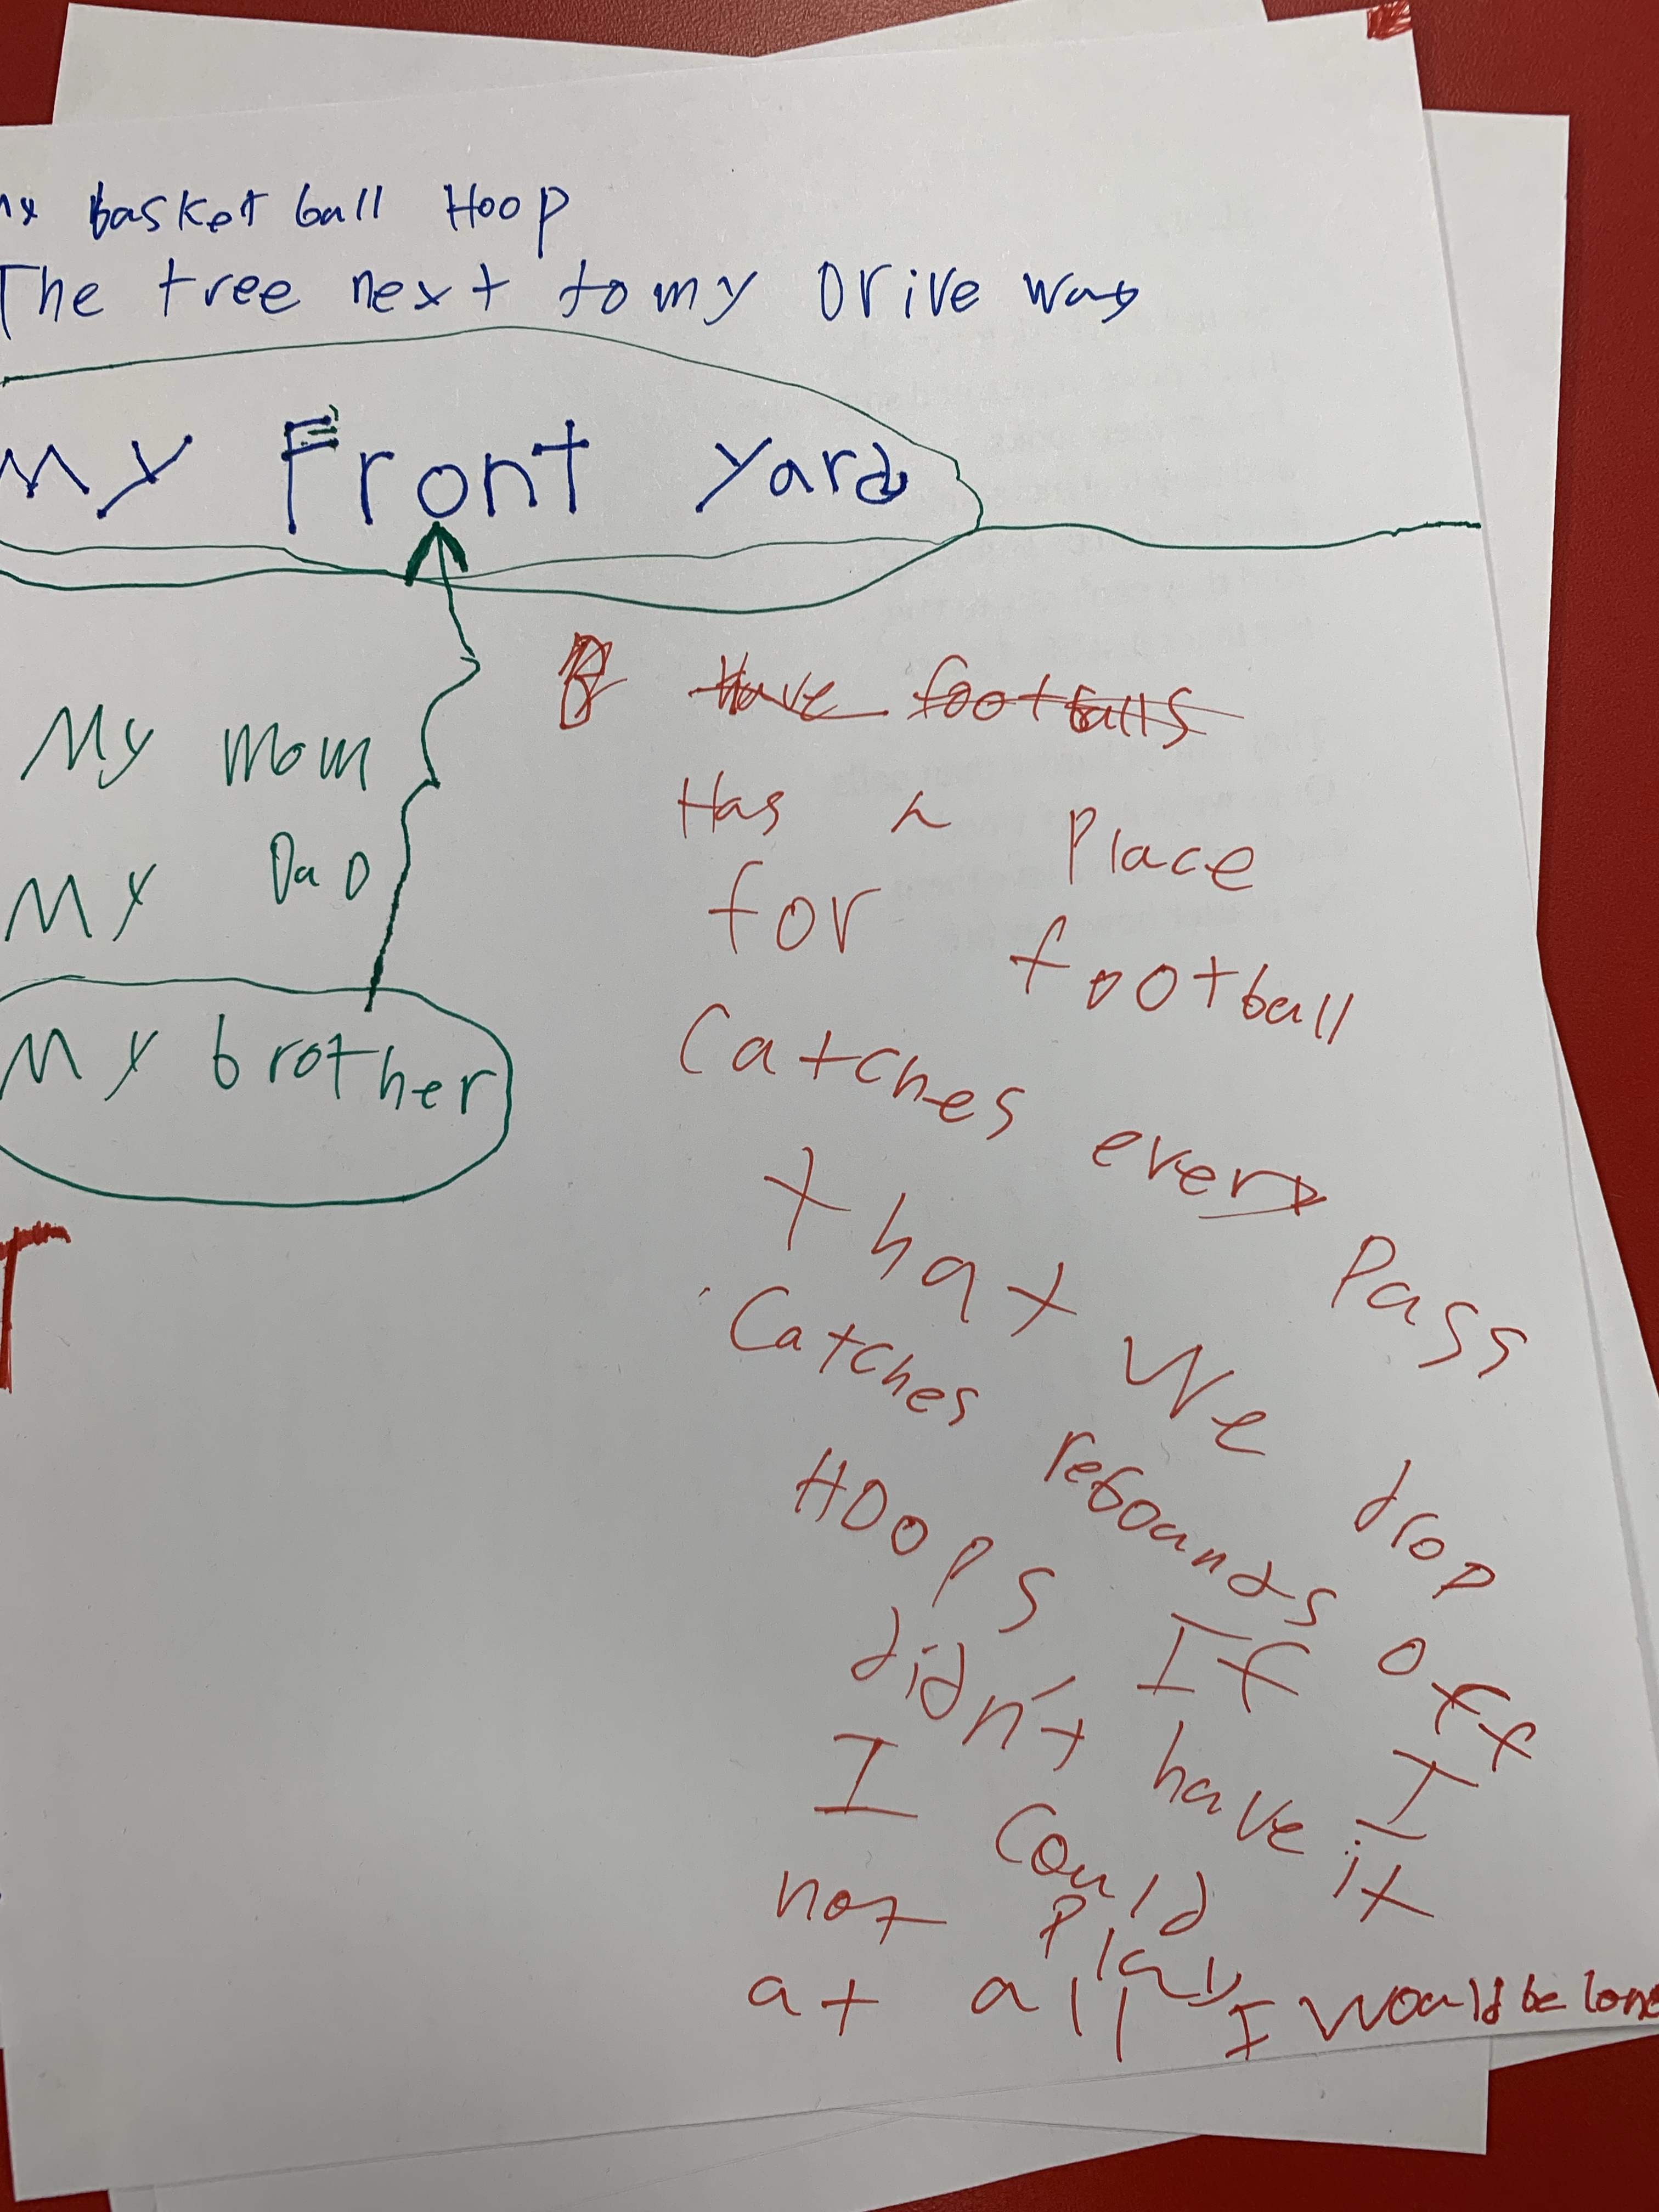 My basket ball Hoop
The tree next to my Drive way
My Front yard
My mom
My Dad
My brother
Have footballs
Has a Place
for football
Catches every Pass
that We drop
Catches rebounds off
Hoops If I
didn't have it
I Could
not Play
at all I would be lone